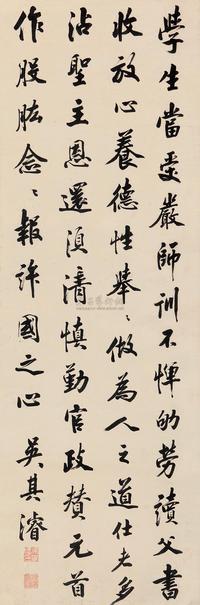 學生當受嚴師訓不憚劬勞讀父書
收放心養德性舉々做為人之道仕老多
沾聖主恩還須清慎勤官政贊元首
作股肱念々報許國之心 吳其濬